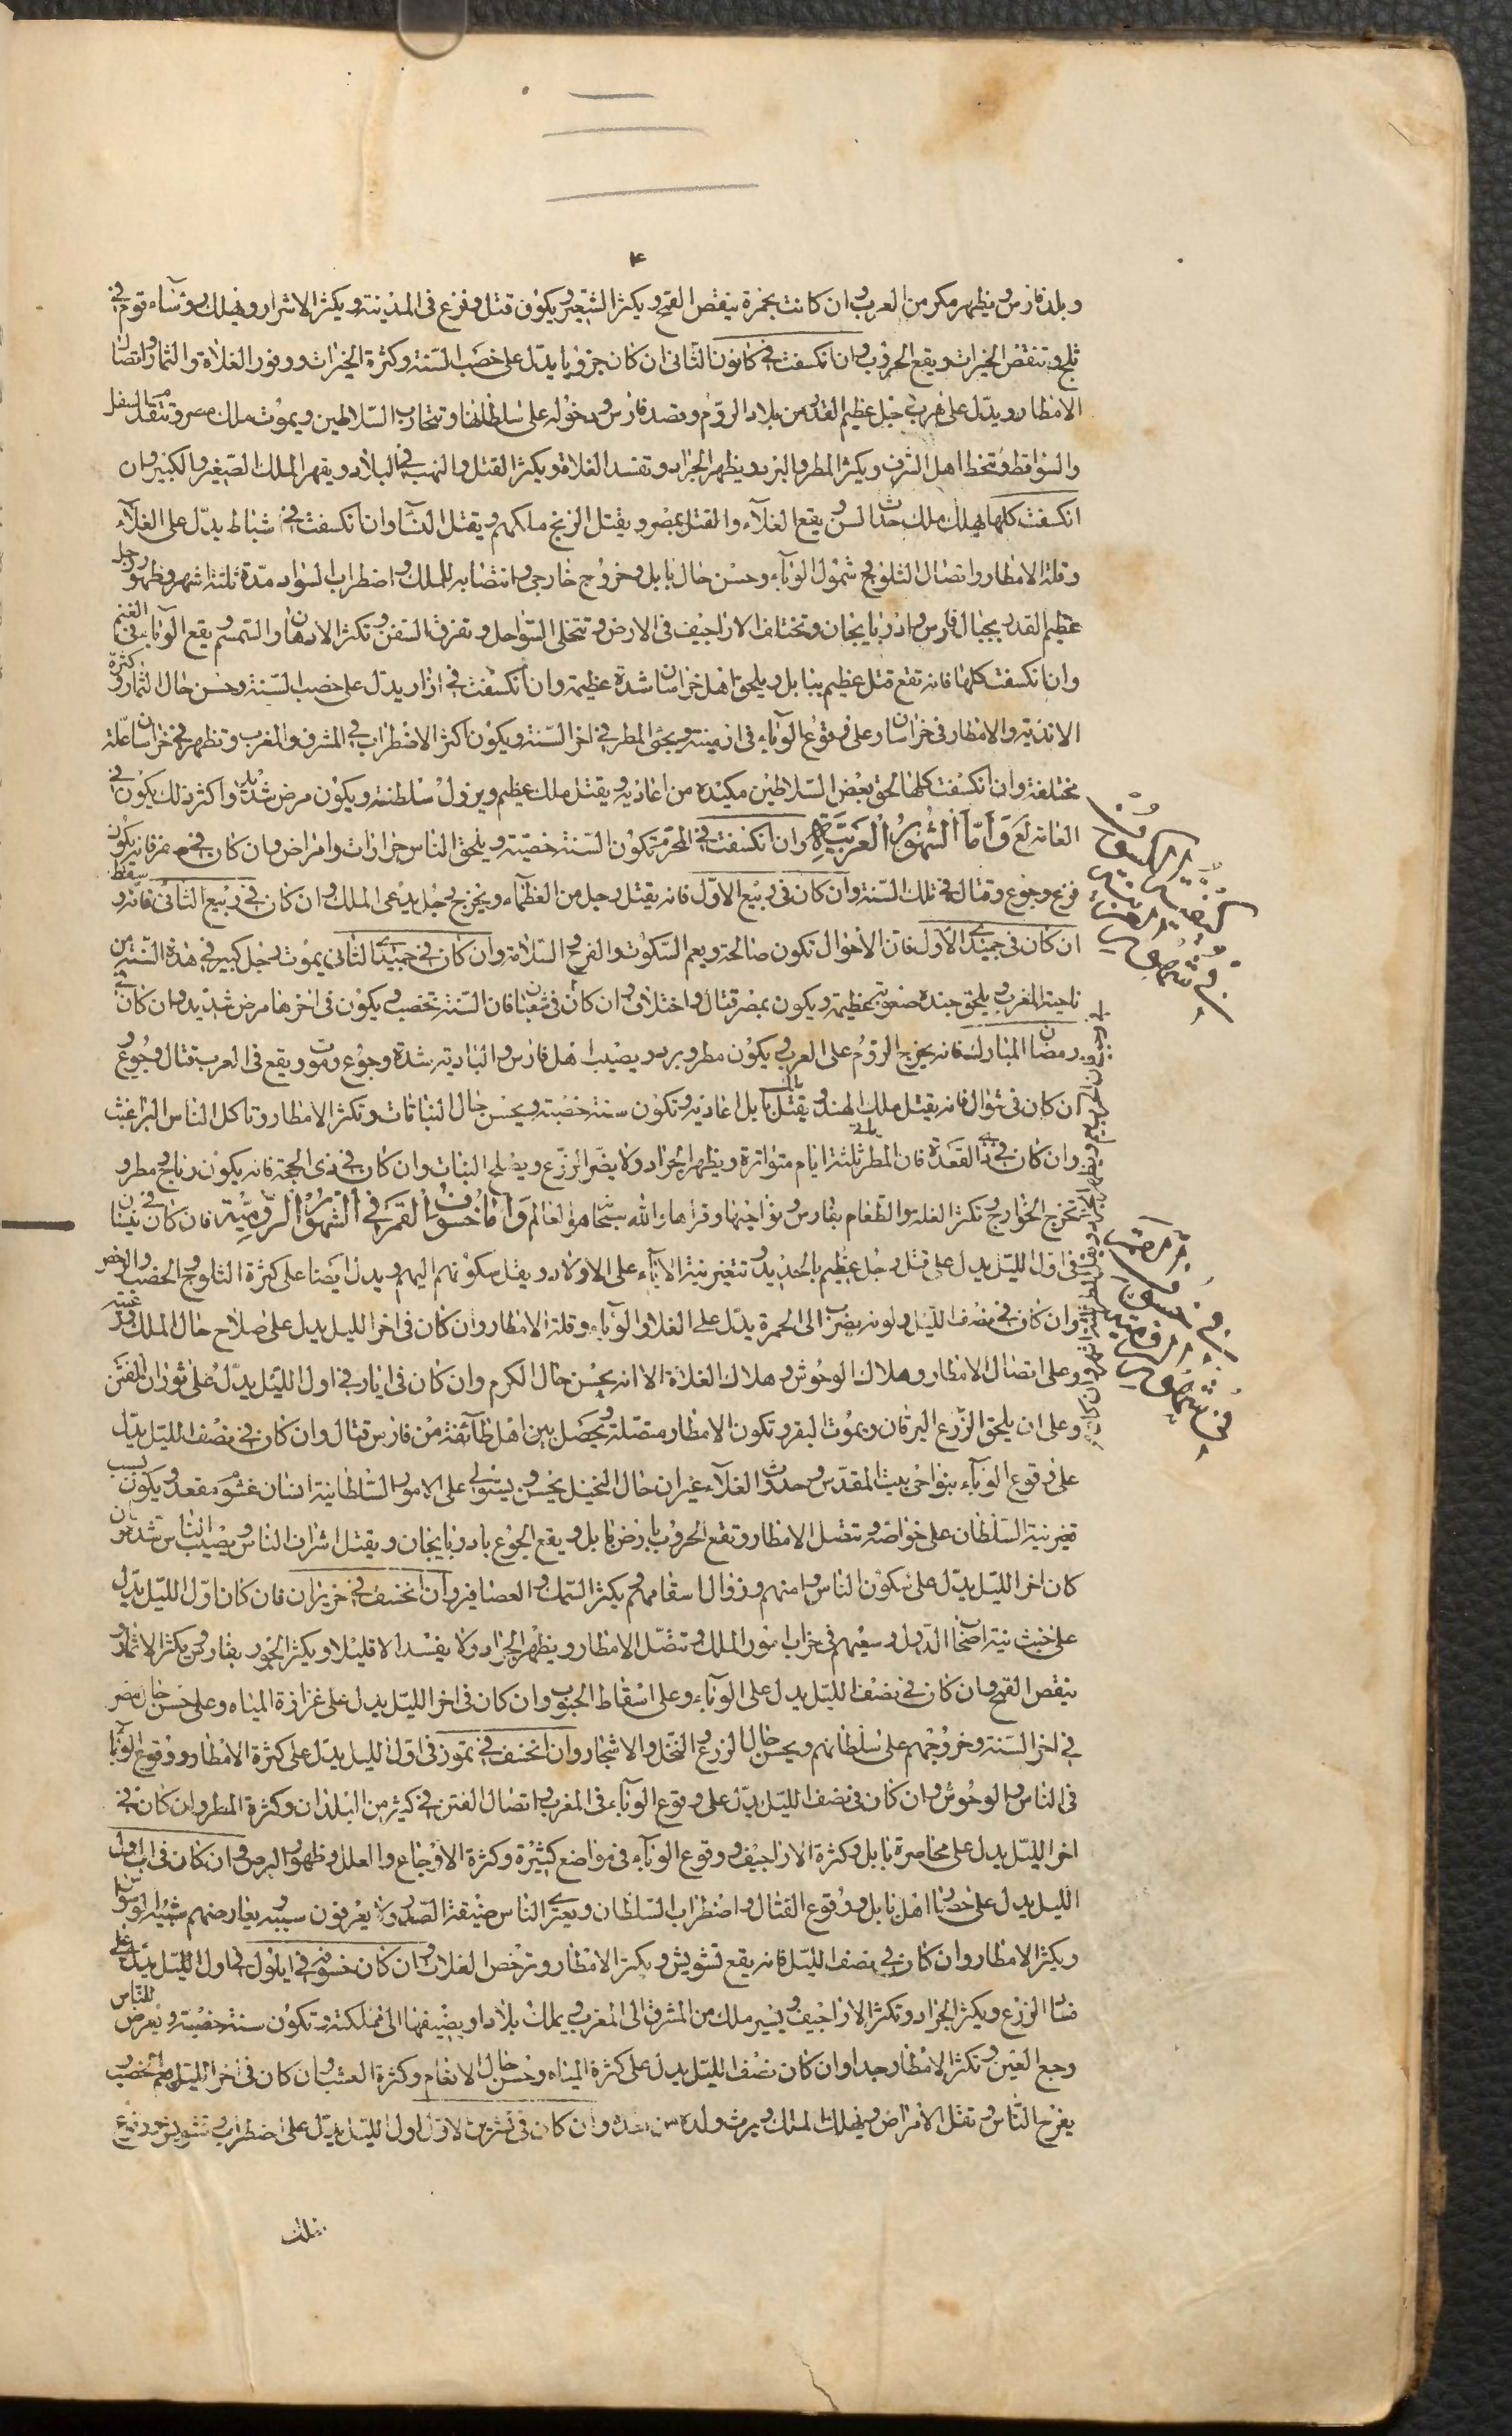 وبلد فارس ويظهر مكر من العرب وان كانت بحمرة ينقص القمح ويكثر الشعير ويكون قتل وفزع في المدينة ويكثر الاشرار ويهلك رؤساء قوم في
ثلج وتنقص الخيرات ويقع الحروب وان انكسفت في كانون الثاني ان كان جزويا يدل على خصب السنة وكثرة الخيرات ووفور الغلاة والثمار واتصال
الامطار ويدل على هرب رجل عظيم القدر من بلاد الروم وقصد فارس ودخوله على سلطانها وتتحارب السلاطين ويموت ملك مصر وتنتقل السفل
والسواقط وتحط اهل الشرف ويكثر المطر والبرد ويظهر الجراد وتفسد الغلاة ويكثر القتل والنهب في البلاد ويقهر الملك الصغير والكبير وان
انكسفت كلها يهلك ملك حدث السن ويقع الغلاء والقتل بمصر ويقتل الزنج ملكهم ويقتل النسا وان انكسفت في شباط يدل على الغلاء
وقلة الامطار واتصال الثلوج وشمول الوباء وحسن حال بابل وخروج خارجي وانتصابه للملك واضطراب السواد مدة ثلثة اشهر وظهور رجل
عظيم القدر بجبال فارس واذربايجان وتختلف الاراجيف في الارض وتتخلى السواحل وتغرق السفن وتكثر الادهان والسمسم ويقع الوباء في الغنم
وان انكسفت كلها فانه تقع قتل عظيم ببابل ويلحق اهل خراسان شدة عظيمة وان انكسفت في اذار يدل على خصب السنة وحسن حال الثمار وكثرة
الاندية والامطار في خراسان وعلى وقوع الوباء في ارمينية ويجئ المطر في اخر السنة ويكون اكثر الاضطراب في المشرق والمغرب وتظهر في خراسان علة
مختلفة وان انكسفت كلها لحق بعض السلاطين مكيدة من اعاديه ويقتل ملك عظيم ويزول سلطنته ويكون مرض شديد واكثر ذلك يكون في
العانة لع واما الشهور العربية وان انكسفت في المحرم تكون السنة خصيبة ويلحق الناس حرارات وامراض وان كان في صفر فانه يكون
فزع وجوع وقتال في تلك السنة وان كان في ربيع الاول فانه يقتل رجل من العظماء ويخرج رجل يدعى الملك وان كان في ربيع الثاني فانه
ان كان في جميدى الاول فان الاحوال تكون صالحة ويعم السكوت والفرح والسلامة وان كان في جميدى الثاني يموت رجل كبير في هذه السنة من
ناحية المغرب ويلحق جنده صعوبة عظيمة ويكون بمصر قتال واختلاف وان كان في شعبان فان السنة تخصب ويكون في اخرها مرض شديد وان كان في
رمضان المبارك فانه يخرج الروم على العرب ويكون مطر وبرد ويصيب اهل فارس والبادية شدة وجوع وموت ويقع في العرب قتال وجوع و
ان كان في شوال فانه يقتل ملك الهند ويقتل ملك بابل اعاديه وتكون سنة خصبة ويحسن حال النباتات وتكثر الامطار وتاكل الناس البراغيث
وان كان في ذى القعدة فان المطر ثلثة ايام متواترة ويظهر الجراد ولا يضر الزرع ويصلح النبات وان كان في ذى الحجة فانه يكون رياح ومطر و
تخرج الخوارج وتكثر الغلة والطعام بفارس ونواحيها وقراها والله سبحانه هو العالم واما خسوف القمر في الشهور الرومية فان كان في نيسان
في اول الليل يدل على قتل رجل عظيم بالحديد وتتغير نية الاباء على الاولاد ويقل سكونهم اليهم ويدل ايضا على كثرة الثلوج والخصب والرخص
وان كان في نصف الليل ولونه يضرب الى الحمرة يدل على الغلا والوباء وقلة الامطار وان كان في اخر الليل يدل على صلاح حال الملك
وعلى اتصال الامطار وهلاك الوحوش وهلاك الغلاة الا انه يحسن حال الكرم وان كان في ايار في اول الليل يدل على ثوران الفتن
وعلى ان يلحق الزرع اليرقان ويموت البقر وتكون الامطار متصلة ويحصل بين اهل طائفة من فارس قتال وان كان في نصف الليل يدل
على وقوع الوباء بنواحي بيت المقدس وحدوث الغلاء غير ان حال النخيل يحسن ويستولى على الامور السلطانية انسان غشوم مقعد ويكون بسبب
تغير نية السلطان على خواصه وتتصل الامطار وتقع الحروب بارض بابل ويقع الجوع باذربايجان ويقتل اشراف الناس ويصيب الناس شدة وان
كان اخر الليل يدل على سكون الناس وامنهم وزوال اسقامهم ويكثر السمك والعصافير وان انخسف في حزيران فان كان اول الليل يدل
على خبث نية اصحاب الدول وسعيهم في خراب امور الملك وتتصل الامطار ويظهر الجراد ولا يفسد الا قليلا ويكثر الجور بفارس ويكثر الاثمار و
ينقص القمح وان كان في نصف الليل يدل على الوباء وعلى اسقاط الحبوب وان كان في اخر الليل يدل على غزارة المياه وعلى حسن حال مصر
في اخر السنة وخروجهم على سلطانهم ويحسن حال الزرع والنخل والاشجار وان انخسف في تموز في اول الليل يدل على كثرة الامطار ووقوع الوباء
في الناس والوحوش وان كان في نصف الليل يدل على وقوع الوباء في المغرب واتصال الفتن في كثير من البلدان وكثرة المطر وان كان في
اخر الليل يدل على محاصرة بابل وكثرة الاراجيف ووقوع الوباء في مواضع كثيرة وكثرة الاوجاع والعلل وظهور البرص وان كان في اب اول
الليل يدل على اهل بابل ووقوع القتال واضطراب السلطان ويعترى الناس ضيقة الصدر ولا يعرفون سببه يعارضهم شبيه الوسواس
ويكثر الامطار وان كان في نصف الليل فانه يقع تشويش ويكثر الامطار وترخص الغلات وان كان خسوفه في ايلول في اول الليل يدل على
فساد الزرع ويكثر الجراد وتكثر الاراجيف ويسير ملك من المشرق الى المغرب ويملك بلادا ويضيفها الى مملكته وتكون سنة خصبة ويعرض للناس
وجع العين وتكثر الامطار جدا وان كان نصف الليل يدل على كثرة المياه وحسن حال الانعام وكثرة العشب وان كان في اخر الليل
يفرح الناس وتقل الامراض ويهلك الملك ويرث ولده من بعده وان كان في تشرين الاول اول الليل يدل على اضطراب وتشويش ووقوع